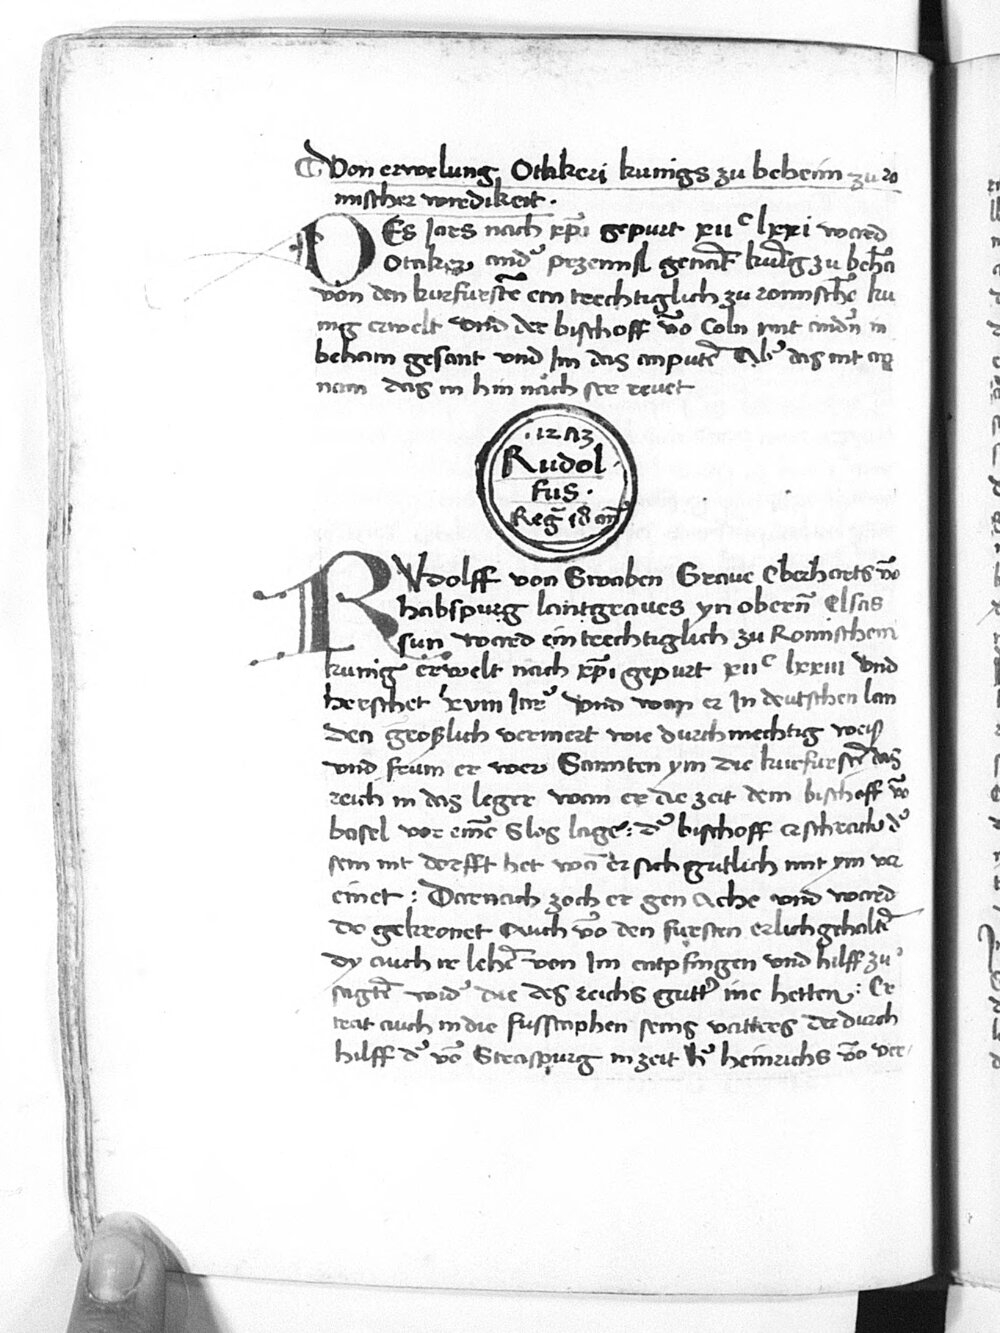 Von erwelung Otakeri kunigs zu beheim zu ro
mischer wirdikeit .
DEs Jars nach xp̄i gepurt xii^c lxxi ward
Otaker and' przemisl genāt kūig zu behā
von den kurfurstē ein trechtiglich zu romischē ku
nig erwelt vnd der bischoff vō Coln mit andn̄ in
beham gesant vnd Im das anputē Ab' das nit an
nam das in hin nach ser revet
. 1273
Rudol
fus .
Regn̄ 18 an̄
RVdolff von Swaben Graue Eberharts vō
habspurg lantgraues yn obern̄ Elsas
sun ward ein trechtiglich zu Romischem
kunig erwelt nach xp̄i gepurt xii^c lxxiii Vnd
herschet xviii Jar' Vnd wan er In deutschen lan
den großlich vermert wie durchmechtig weiß
vnd frum er wer Sannten ym die kurfurstē das
reich in das leger wan er die zeit dem bischoff vō
basel vor eim̄e Slos lage : d' bischoff erschrack d'
sein nit dorfft het wā er sich gutlich mit ym ver
einet : Darnach zoch er gen Ache vnd ward
do gekronet Auch vō den fursten erlich gehaltē
dy auch ir lehē von Im entpfingen vnd hilff zu
sagtē wid' die des reichs gutt' ine hetten : Er
trat auch in die fusstaphen seins vatters der durch
hilff d' vō Straspurg in zeit k' heinrichs vō ver